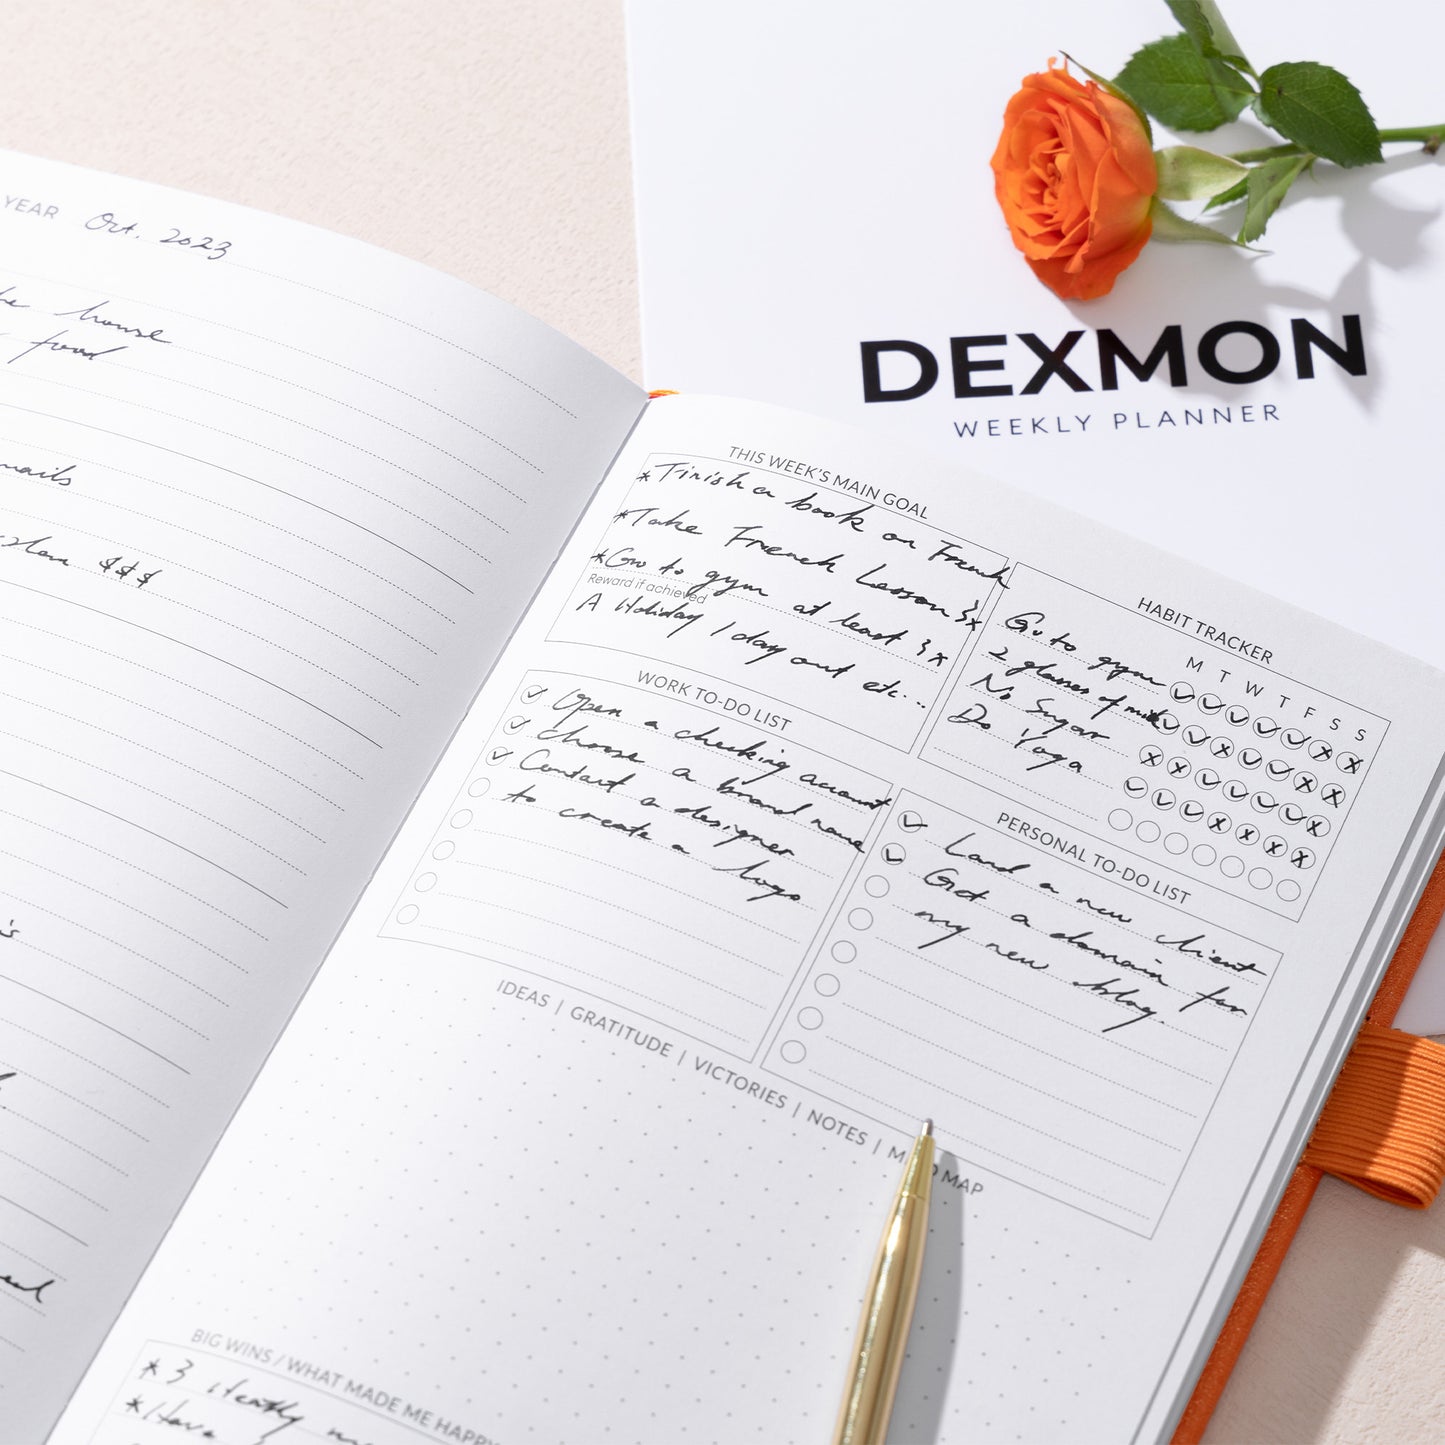 YEAR Oct. 2023
house
food
mails
$$$
DEXMON
WEEKLY PLANNER
THIS WEEK'S MAIN GOAL
*Finish a book on French
*Take French Lesson 3x
*Go to gym at least 3x
Reward if achieved
A Holiday 1 day out etc..
HABIT TRACKER
M T W T F S S
Go to gym
2 glasses of milk
No Sugar
Do Yoga
WORK TO-DO LIST
Open a checking account
choose a brand name
Contact a designer
to create a logo
PERSONAL TO-DO LIST
Land a new client
Get a domain for
my new blog.
IDEAS | GRATITUDE | VICTORIES | NOTES | MIND MAP
BIG WINS / WHAT MADE ME HAPPY
* 3
*Have